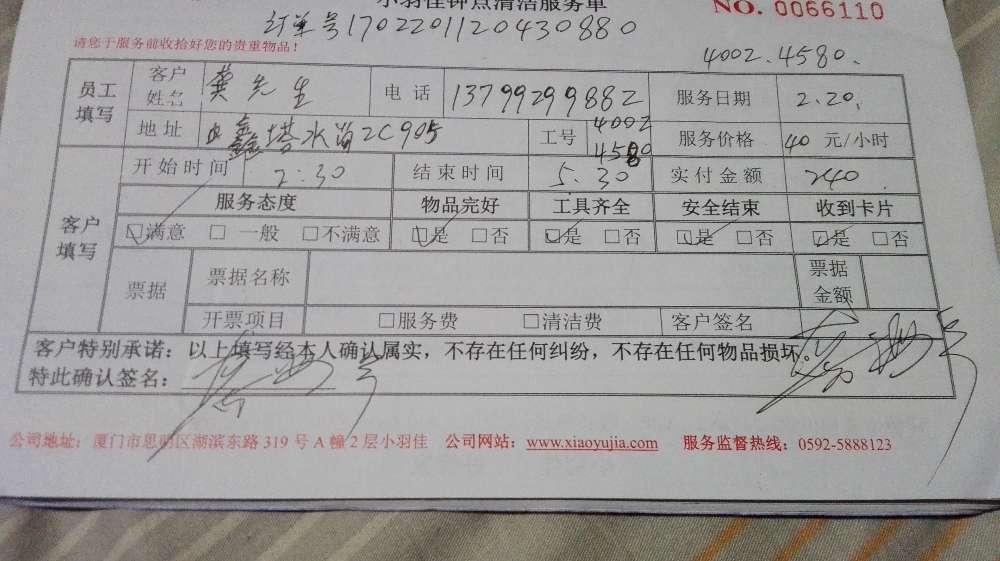 小羽佳钟点清洁服务单 NO. 0066110
订单号170220112043088​0
请您于服务前收拾好您的贵重物品！ 4002.4580.
员工填写 客户姓名 龚先生 电话 13799299882 服务日期 2.20.
地址 鑫塔水尚2C905 工号 4002 4580 服务价格 40 元/小时
客户填写 开始时间 2:30 结束时间 5.30 实付金额 240.
服务态度 物品完好 工具齐全 安全结束 收到卡片
☑满意 □一般 □不满意 ☑是 □否 ☑是 □否 ☑是 □否 ☑是 □否
票据 票据名称 票据金额
开票项目 □服务费 □清洁费 客户签名
客户特别承诺：以上填写经本人确认属实，不存在任何纠纷，不存在任何物品损坏。
特此确认签名：
公司地址：厦门市思明区湖滨东路 319 号 A 幢 2 层小羽佳 公司网站：www.xiaoyujia.com 服务监督热线：0592-5888123